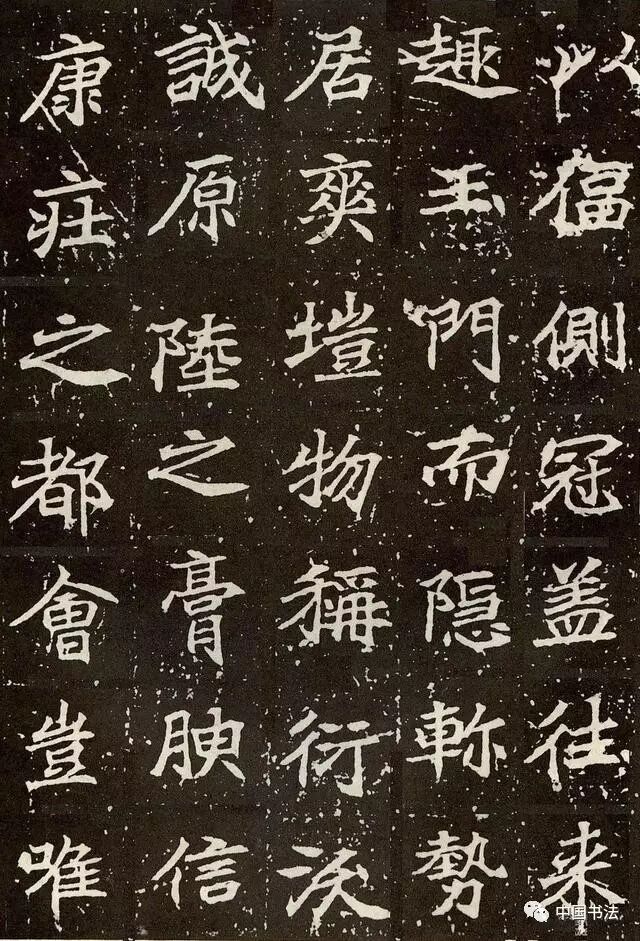 以偪側冠盖往来
趣王門而隐軫勢
居爽塏物稱衍沃
誠原陸之膏腴信
康莊之都會豈唯
中国书法